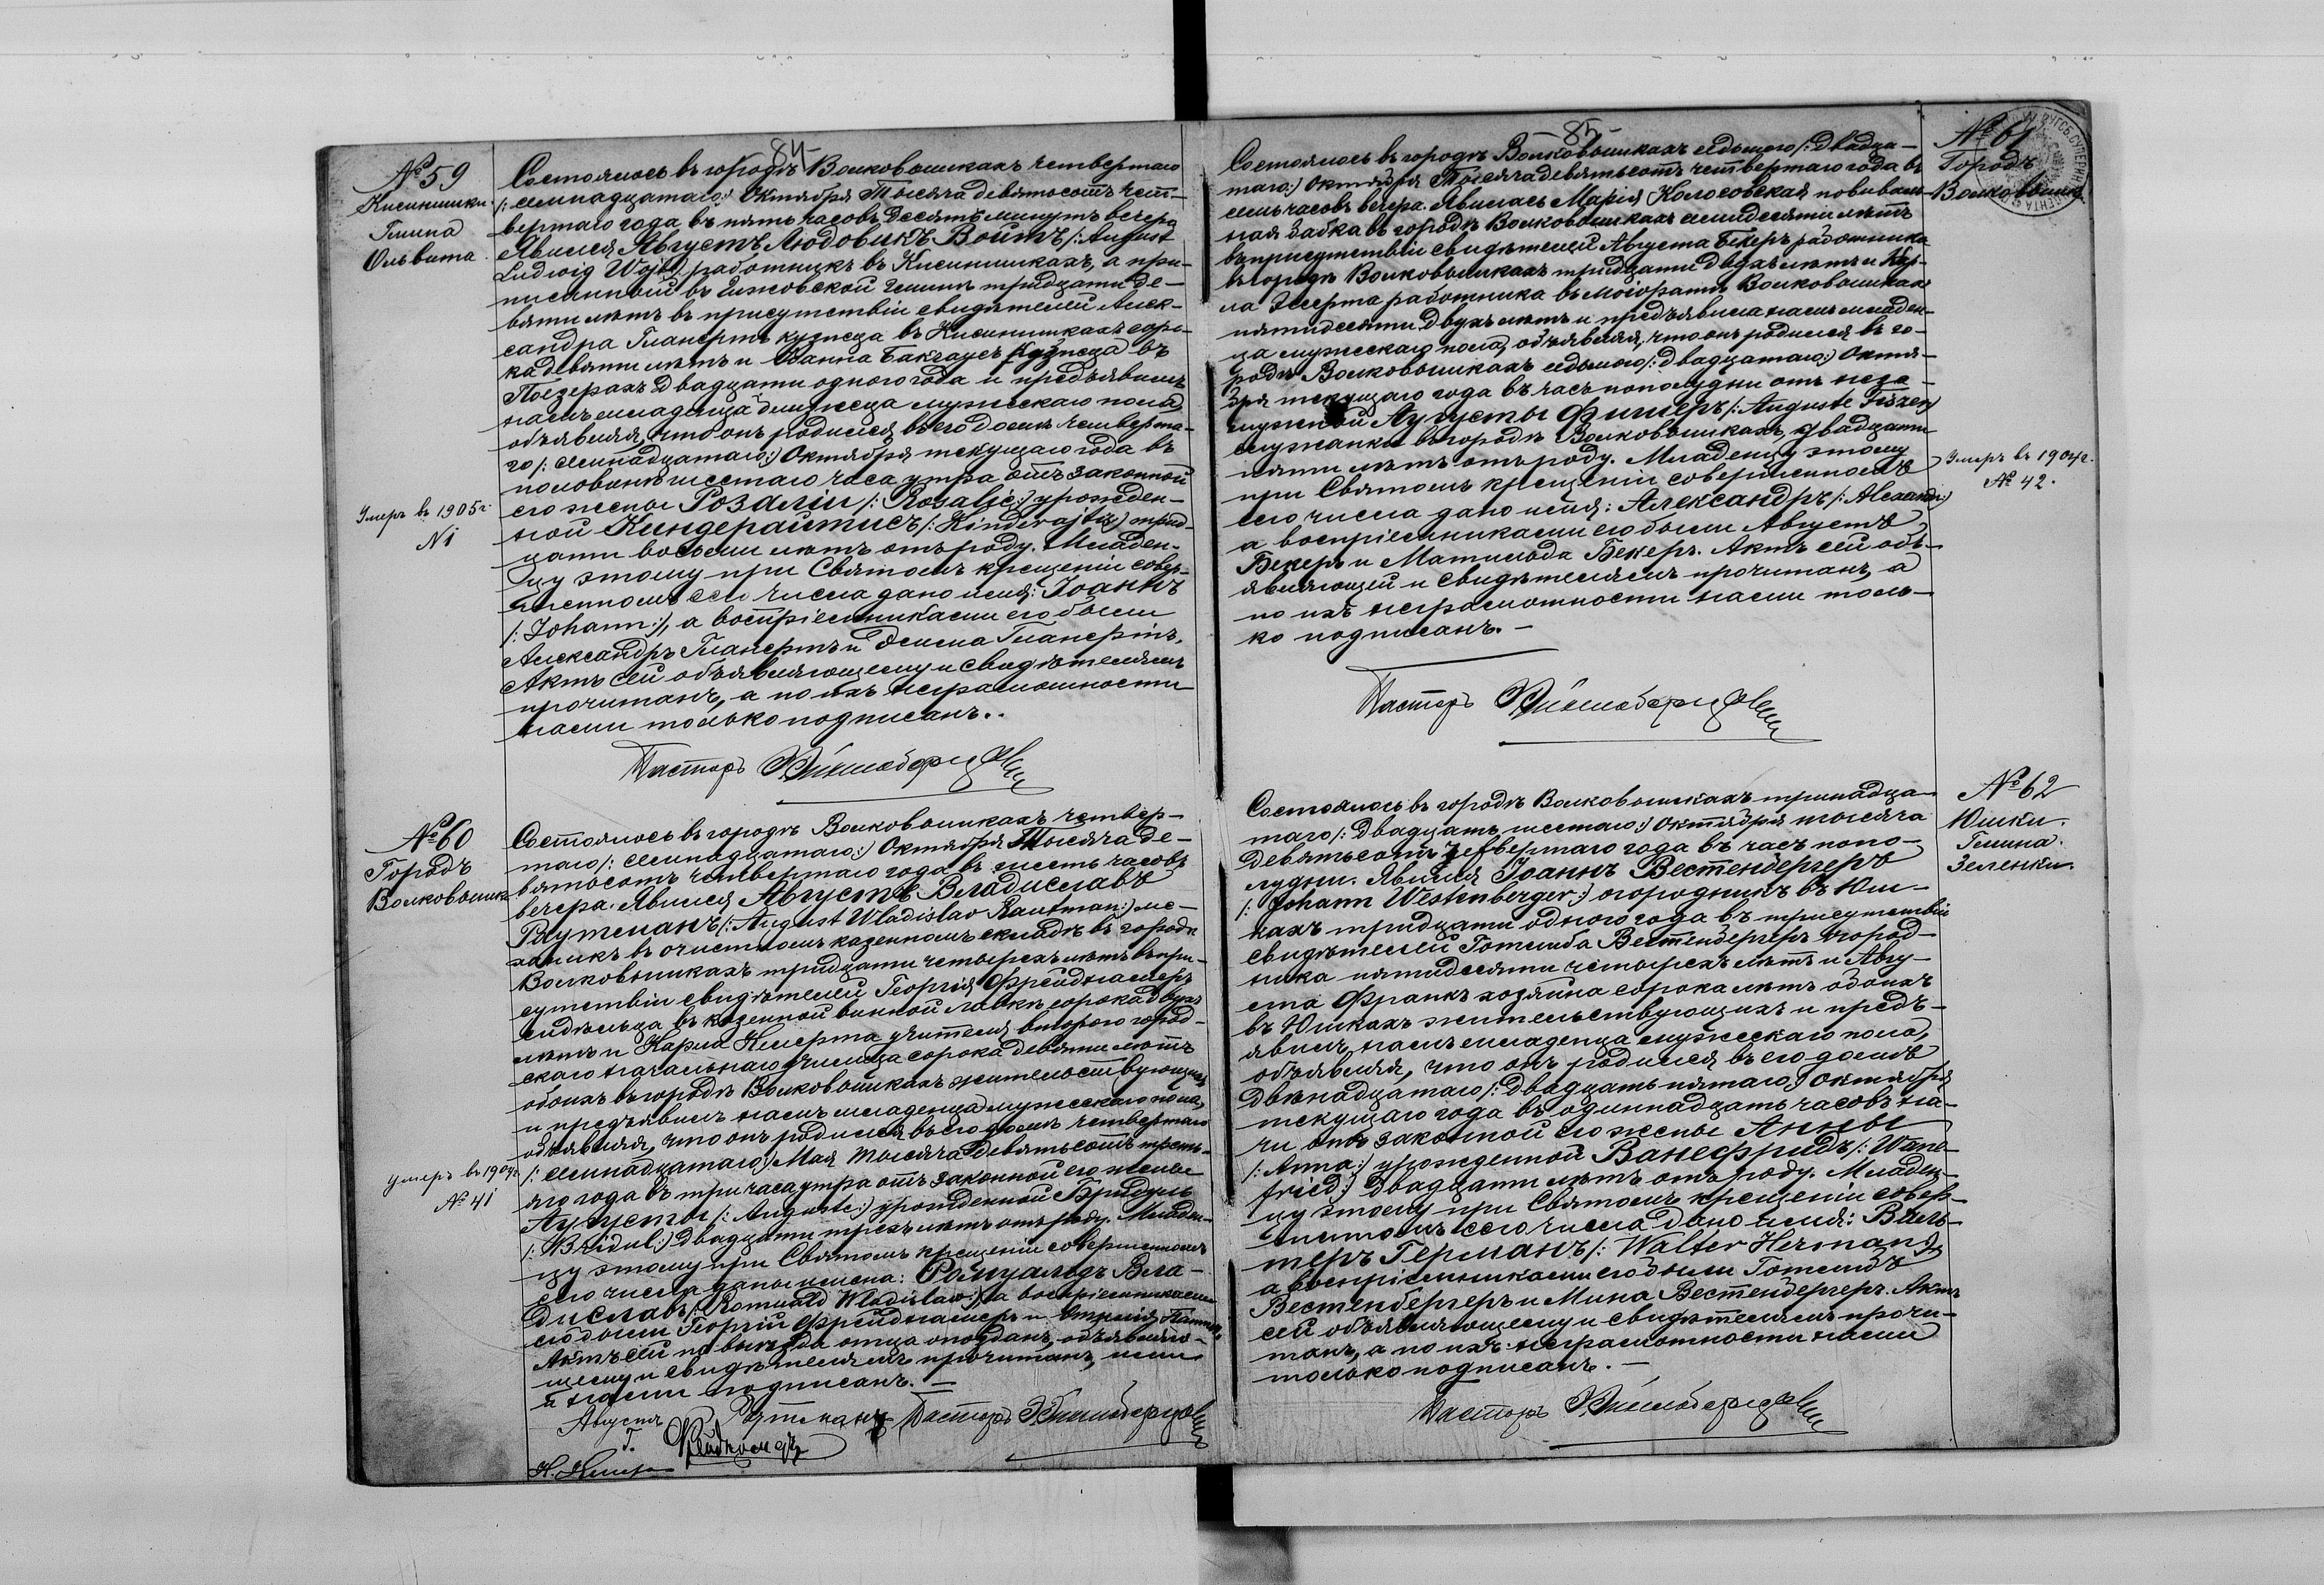 84
№ 59
Кисинишки
Гмина
Ольвита.
Состоялось въ городѣ Волковышкахъ четвертаго
/: семнадцатаго:/ Октября Тысяча девятьсотъ чет-
вертаго года въ пять часовъ десять минутъ вечера
Явился Августъ Людовикъ Войтъ /: August
Ludwig Wojt:/ работникъ въ Кисинишкахъ, а при-
писанный въ гминѣ тридцати де-
вяти лѣтъ въ присутствіи свидѣтелей Алек-
сандра Гланертъ кузнеца въ Кисинишкахъ соро-
ка девяти лѣтъ и Іоанна Бакгаусъ кузнеца въ
Поезерахъ двадцати одного года и предъявилъ
намъ младенца мужескаго пола,
объявляя, что онъ родился въ его домѣ четверта-
го /: семнадцатаго:/ Октября текущаго года въ
половинѣ шестаго часа утра отъ законной
его жены Розаліи /: Rozalje:/ урожден-
ной Киндерайтисъ /: Kinderajtis:/ трид-
цати восьми лѣтъ отъ роду. Младен-
цу этому при Святомъ крещеніи совер-
шенномъ сего числа дано имя: Іоаннъ
/: Johann:/, а воспріемниками его были
Александръ Гланертъ и Эмма Гланертъ.
Актъ сей объявляющему и свидѣтелямъ
прочитанъ, а по ихъ неграмотности
нами только подписанъ.
Умеръ въ 1905 г.
N 1
Пасторъ
№ 60
Городъ
Волковышки
Состоялось въ городѣ Волковышкахъ четвер-
таго /: семнадцатаго:/ Октября Тысяча де-
вятьсотъ четвертаго года въ шесть часовъ
вечера. Явился Августъ Владиславъ
Раутманъ /: August Wladislav Rautman:/ ме-
ханикъ въ очистномъ казенномъ складѣ въ городѣ
Волковышкахъ тридцати четырехъ лѣтъ въ при-
сутствіи свидѣтелей Георгія Фрейдгамеръ
сидѣльца въ казенной винной лавкѣ сорока двухъ
лѣтъ и Карла Клерта учителя втораго город-
скаго начальнаго училища сорока девяти лѣтъ
обоихъ въ городѣ Волковышкахъ жительствующихъ
и предъявилъ намъ младенца мужескаго пола,
объявляя, что онъ родился въ его домѣ четвертаго
/: семнадцатаго:/ Мая Тысяча девятьсотъ треть-
яго года въ три часа утра отъ законной его жены
Аугусты /: Auguste:/ урожденной Бридуль
/: Bridul:/ двадцати трехъ лѣтъ отъ роду. Младен-
цу этому при Святомъ крещеніи совершенномъ
сего числа даны имена: Ромуальдъ Вла-
диславъ /: Romuald Wladislaw:/, а воспріемниками
его были Георгій Фрейдгамеръ и
Актъ сей по винѣ отца опозданъ, объявляю-
щему и свидѣтелямъ прочитанъ, ими
и нами подписанъ. —
умеръ въ 1904 г.
№ 41
Августъ Раутманъ Пасторъ
Г.
К. Клерт
85
№ 61
Городъ
Волковышки
Состоялось въ городѣ Волковышкахъ седьмаго /: двадца-
таго:/ Октября Тысяча девятьсотъ четвертаго года въ
семь часовъ вечера. Явилась Марія Колосовская повиваль-
ная бабка въ городѣ Волковышкахъ семидесяти лѣтъ
въ присутствіи свидѣтелей Августа Бекеръ работника
въ городѣ Волковышкахъ тридцати двухъ лѣтъ и Кар-
ла работника въ маіоратѣ Волковышкахъ
пятидесяти двухъ лѣтъ и предъявила намъ младен-
ца мужескаго пола, объявляя, что онъ родился въ го-
родѣ Волковышкахъ седьмаго /: двадцатаго:/ Октя-
бря текущаго года въ часъ пополудни отъ неза-
мужной Аугусты Фишеръ /: Auguste Fiszer:/
служанки въ городѣ Волковышкахъ, двадцати
пяти лѣтъ отъ роду. Младенцу этому
при Святомъ крещеніи совершенномъ
сего числа дано имя: Александръ /: Alexandr:/
а воспріемниками его были Августъ
Бекеръ и Матильда Бекеръ. Актъ сей объ-
являющей и свидѣтелямъ прочитанъ, а
по ихъ неграмотности нами толь-
ко подписанъ. —
Умеръ въ 1904 г.
№ 42.
Пасторъ
№ 62
Юшки.
Гмина.
Зеленки.
Состоялось въ городѣ Волковышкахъ тринадца-
таго /: двадцать шестаго:/ Октября тысяча
девятьсотъ четвертаго года въ часъ попо-
лудни. Явился Іоаннъ Вестенбергеръ
/: Johann Westenberger:/ огородникъ въ Юш-
кахъ тридцати одного года въ присутствіи
свидѣтелей Готлиба Вестенбергеръ огород-
ника пятидесяти четырехъ лѣтъ и Авгу-
ста Франкъ хозяина сорока лѣтъ обоихъ
въ Юшкахъ жительствующихъ и предъ-
явилъ намъ младенца мужескаго пола,
объявляя, что онъ родился въ его домѣ
двѣнадцатаго /: двадцать пятаго:/ Октября
текущаго года въ одиннадцать часовъ но-
чи отъ законной его жены Анны
/: Anna:/ урожденной Ванефридъ /: Wane-
fried:/ двадцати лѣтъ отъ роду. Младен-
цу этому при Святомъ крещеніи совер-
шенномъ сего числа дано имя: Валь-
теръ Германъ /: Walter Herman:/,
а воспріемниками его были Готлибъ
Вестенбергеръ и Мина Вестенбергеръ. Актъ
сей объявляющему и свидѣтелямъ прочи-
танъ, а по ихъ неграмотности нами
только подписанъ. —
Пасторъ